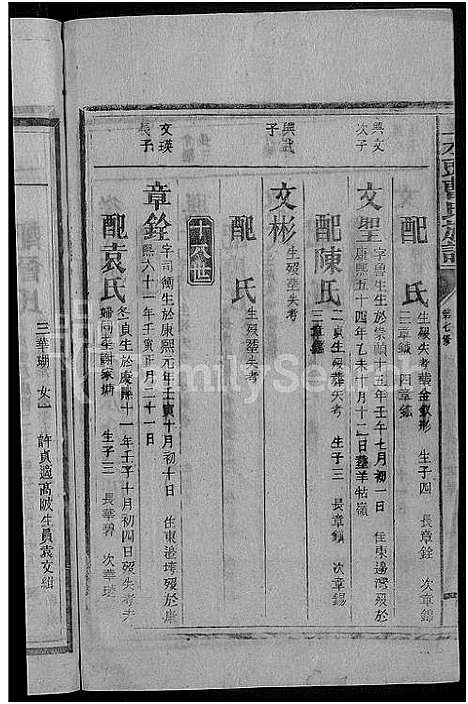 配 氏
生歿失考葬金釵形 生子四 長章銓 次章錫
三章鎮 四章鏞
興文
次子
文聖
字魯生生於崇禎十五年壬午七月初一日 住東邊灣歿於
康熙五十四年乙未十月十二日葬羊牯嶺
配陳氏
貞生歿葬失考 生子三 長章鎮 次章錫
三章鏞
興武
子
文彬
生歿葬失考
配 氏
生歿葬失考
十八世
文瑛
長子
章銓
字司衡生於康熙元年壬寅十月初十日 住東邊塆歿於康
熙六十一年壬寅正月二十一日
配袁氏
冬貞生於康熙十一年壬子十月初四日歿失考夫
生子三 長華碧 次華
三華瑚 女一 許貞適高陂生員袁文組
FamilySearch